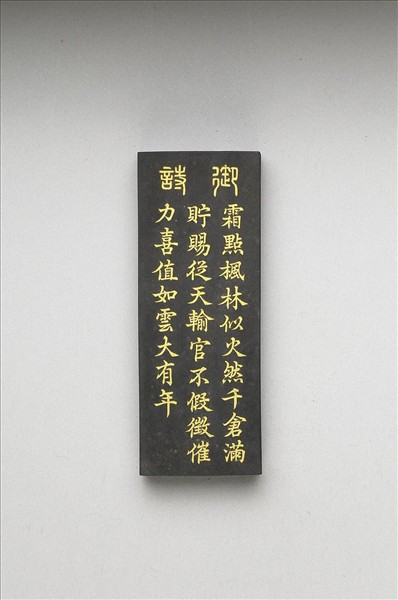 御詩
霜點楓林似火然千倉滿
貯賜從天輸官不假徵催
力喜值如雲大有年